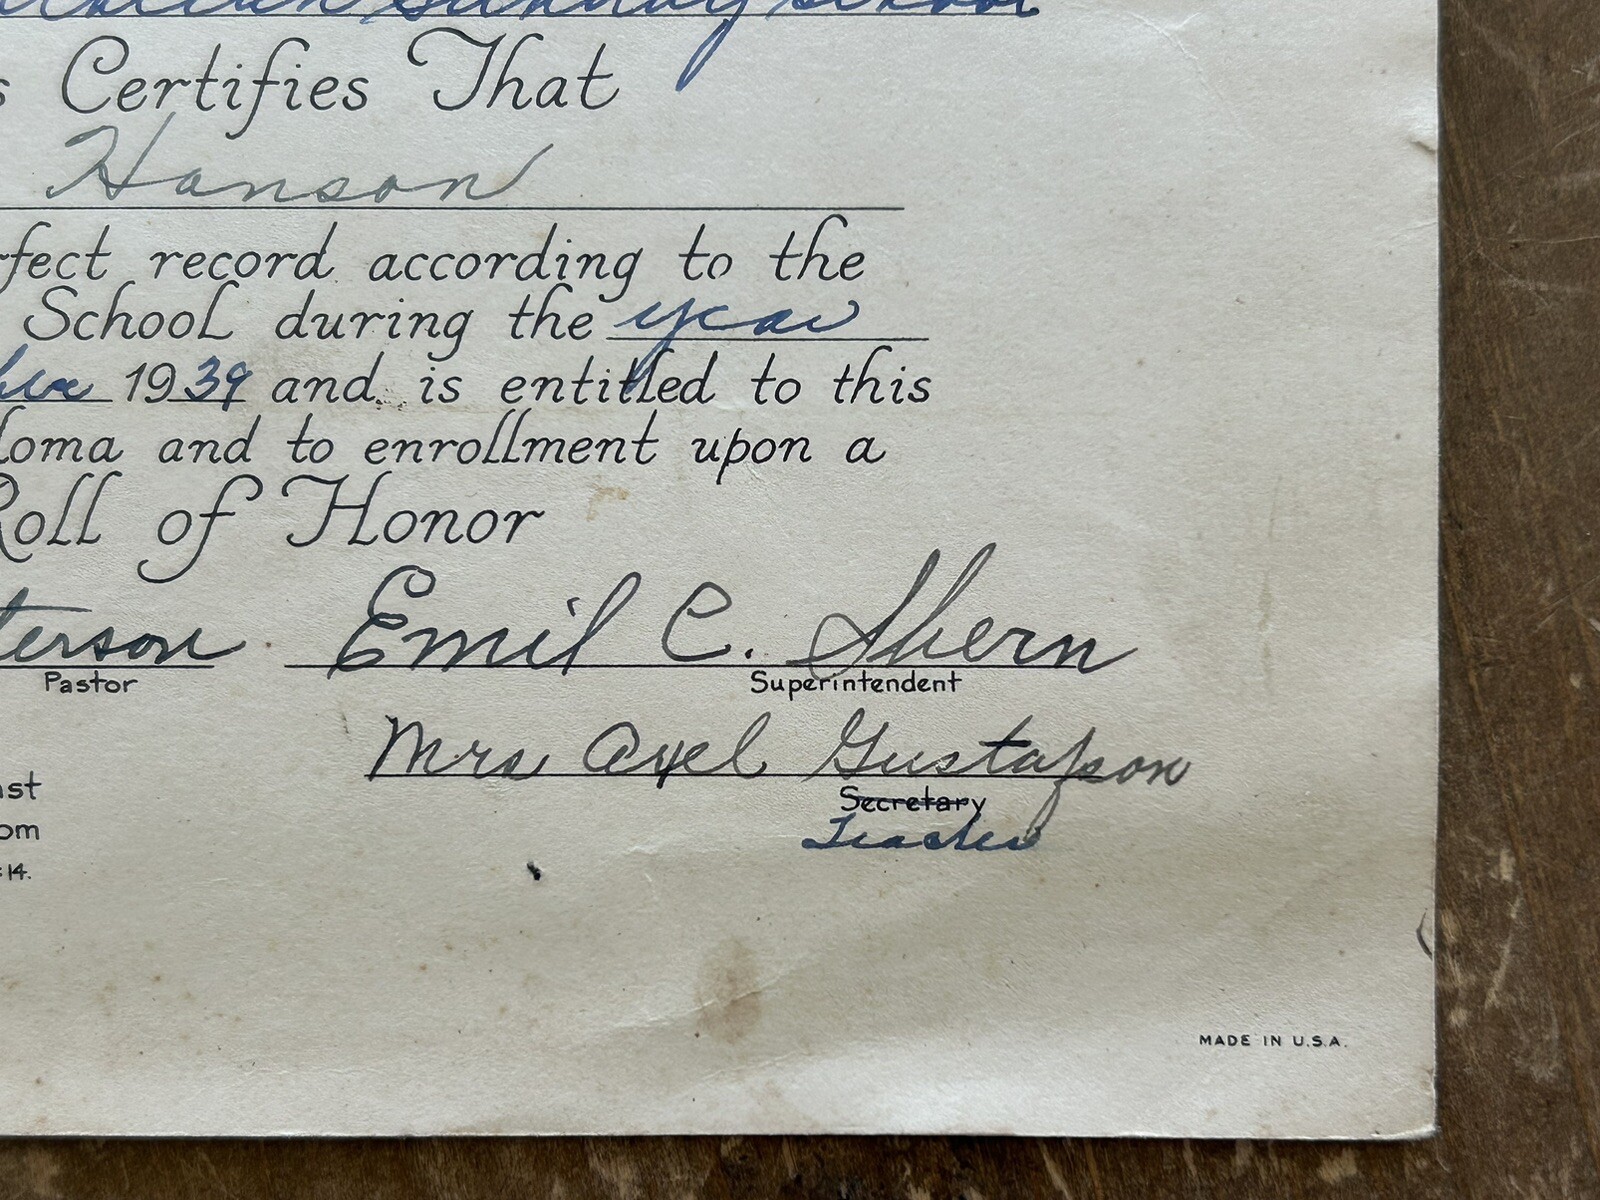 Sunday School
s Certifies That
Hanson
rfect record according to the
School during the year
1939 and is entitled to this
loma and to enrollment upon a
Roll of Honor
terson Emil C. Shern
Pastor Superintendent
Mrs Axel Gustafson
Secretary
Teacher
st
om
:14.
MADE IN U.S.A.